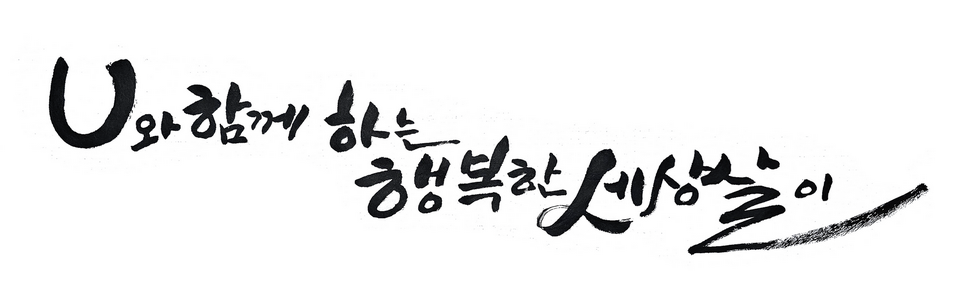 U와 함께 하는
행복한 세상살이